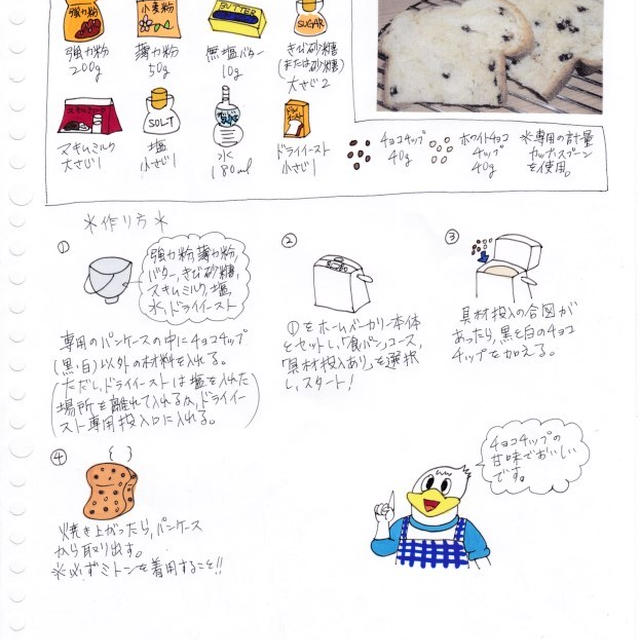 強力粉
200g
薄力粉
50g
BUTTER
無塩バター
10g
SUGAR
きび砂糖
(または砂糖)
大さじ2
スキムミルク
大さじ1
SOLT
塩
小さじ1
水
180ml
ドライイースト
小さじ1
チョコチップ
40g
ホワイトチョコ
チップ
40g
※専用の計量
カップ、スプーン
を使用。
*作り方*
①
強力粉、薄力粉、
バター、きび砂糖、
スキムミルク、塩、
水、ドライイースト
専用のパンケースの中にチョコチップ
(黒・白)以外の材料を入れる。
(ただし、ドライイーストは塩を入れた
場所を離れて入れるか、ドライイー
スト専用投入口に入れる。)
②
①をホームベーカリー本体
にセットし、「食パン」コース、
「具材投入あり」を選択
し、スタート!
③
具材投入の合図が
あったら、黒と白のチョコ
チップを加える。
④
焼き上がったら、パンケース
から取り出す。
※必ずミトンを着用すること!!
チョコチップの
甘味でおいしい
です。